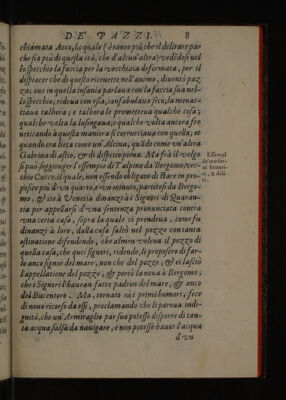 DE' PAZZI. 8
chiamata Acco, la quale (è tanto più, che il delirare par
che sia più di questa età, che d'alcun'altra) vedẽdosi nel
lo specchio la faccia per la vecchiaia deformata, per il
dispiacer che di questo riceuette nell'animo, diuentò paz
za; oue in quella insania parlaua con la faccia sua nel-
lo specchio, ridea con essa, confabulaua seco; la minac-
ciaua talhora; e talhora le prometteua qualche cosa;
qualche volta la lusingaua; e qualche volta ancora fre
neticando à questa maniera si corrucciaua con quella; et
quando era lieta come un'Alcina, quãdo come vn'altra
Gabrina di asto, & di dispetto piena. Ma frà il volgo
si può soggiunger l'essempio di Talpino da Bergamo, vec-
chio Cucco, il quale, non essendo obligato di stare in pro-
posito più d'vn quarto, e vn minuto, partitosi da Berga-
mo, & ito à Venetia dinanzi à i Signori di Quaran-
tia per appellarsi d'vna sentenza pronunciata contra
vna certa casa, sopra la quale ei prendeua, come fu
dinanzi à loro, dalla casa saltò nel pozzo con tanta
ostinatione difendendo, che almen voleua il pozzo di
quella casa, che quei signori, ridendo, li proposero di far-
lo anco signor del mare, non che del pozzo; & ei lasciò
l'appellatione del pozzo, & portò la noua à Bergamo,
che i Signori l'hauean fatto padron del mare, & anco
del Bucentoro. Ma, tornato sù i primi humori, fece
di nouo ricorso da essi, proclamando che li pareua indi-
gnità, che un'Armiraglio par suo potesse disporre di tan-
ta acqua salsa da nauigare, e non potesse hauer l'acqua
d'vn
Essempi
di vander-
ci, frenati-
ci, & deli-
ri.